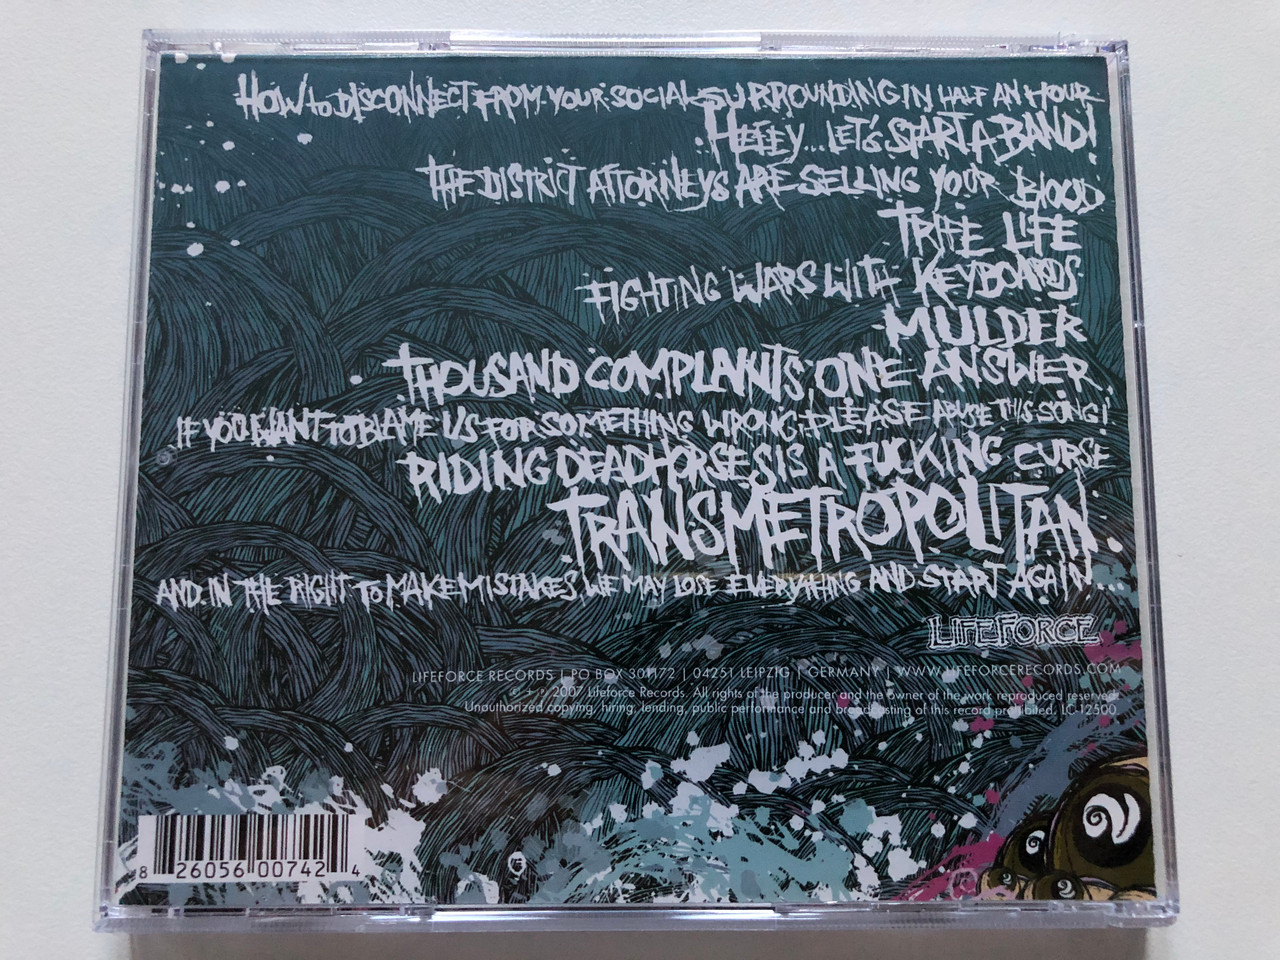 HOW to DISCONNECT FROM YOUR SOCIAL SURROUNDING IN HALF AN HOUR
HEEEY... LET'S START A BAND!
THE DISTRICT ATTORNEYS ARE SELLING YOUR BLOOD
TRIFE LIFE
FIGHTING WARS WITH KEYBOARDS
MULDER
THOUSAND COMPLAINTS, ONE ANSWER
IF YOU WANT TO BLAME US FOR SOMETHING WRONG, PLEASE ABUSE THIS SONG!
RIDING DEADHORSES IS A FUCKING CURSE
TRANSMETROPOLITAN
AND IN THE RIGHT TO MAKE MISTAKES, WE MAY LOSE EVERYTHING AND START AGAIN...
LIFEFORCE
LIFEFORCE RECORDS | PO BOX 301172 | 04251 LEIPZIG | GERMANY | WWW.LIFEFORCERECORDS.COM
© + ℗ 2007 Lifeforce Records. All rights of the producer and the owner of the work reproduced reserved.
Unauthorized copying, hiring, lending, public performance and broadcasting of this record prohibited. LC-12500.
8 26056 00742 4